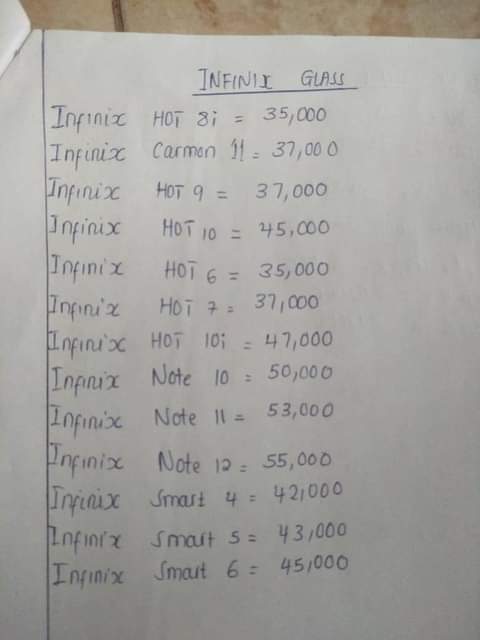 INFINIX GLASS
Infinix HOT 8i = 35,000
Infinix Carmon 11 = 37,000
Infinix HOT 9 = 37,000
Infinix HOT 10 = 45,000
Infinix HOT 6 = 35,000
Infinix HOT 7 = 37,000
Infinix HOT 10i = 47,000
Infinix Note 10 = 50,000
Infinix Note 11 = 53,000
Infinix Note 12 = 55,000
Infinix Smart 4 = 42,000
Infinix Smart 5 = 43,000
Infinix Smart 6 = 45,000